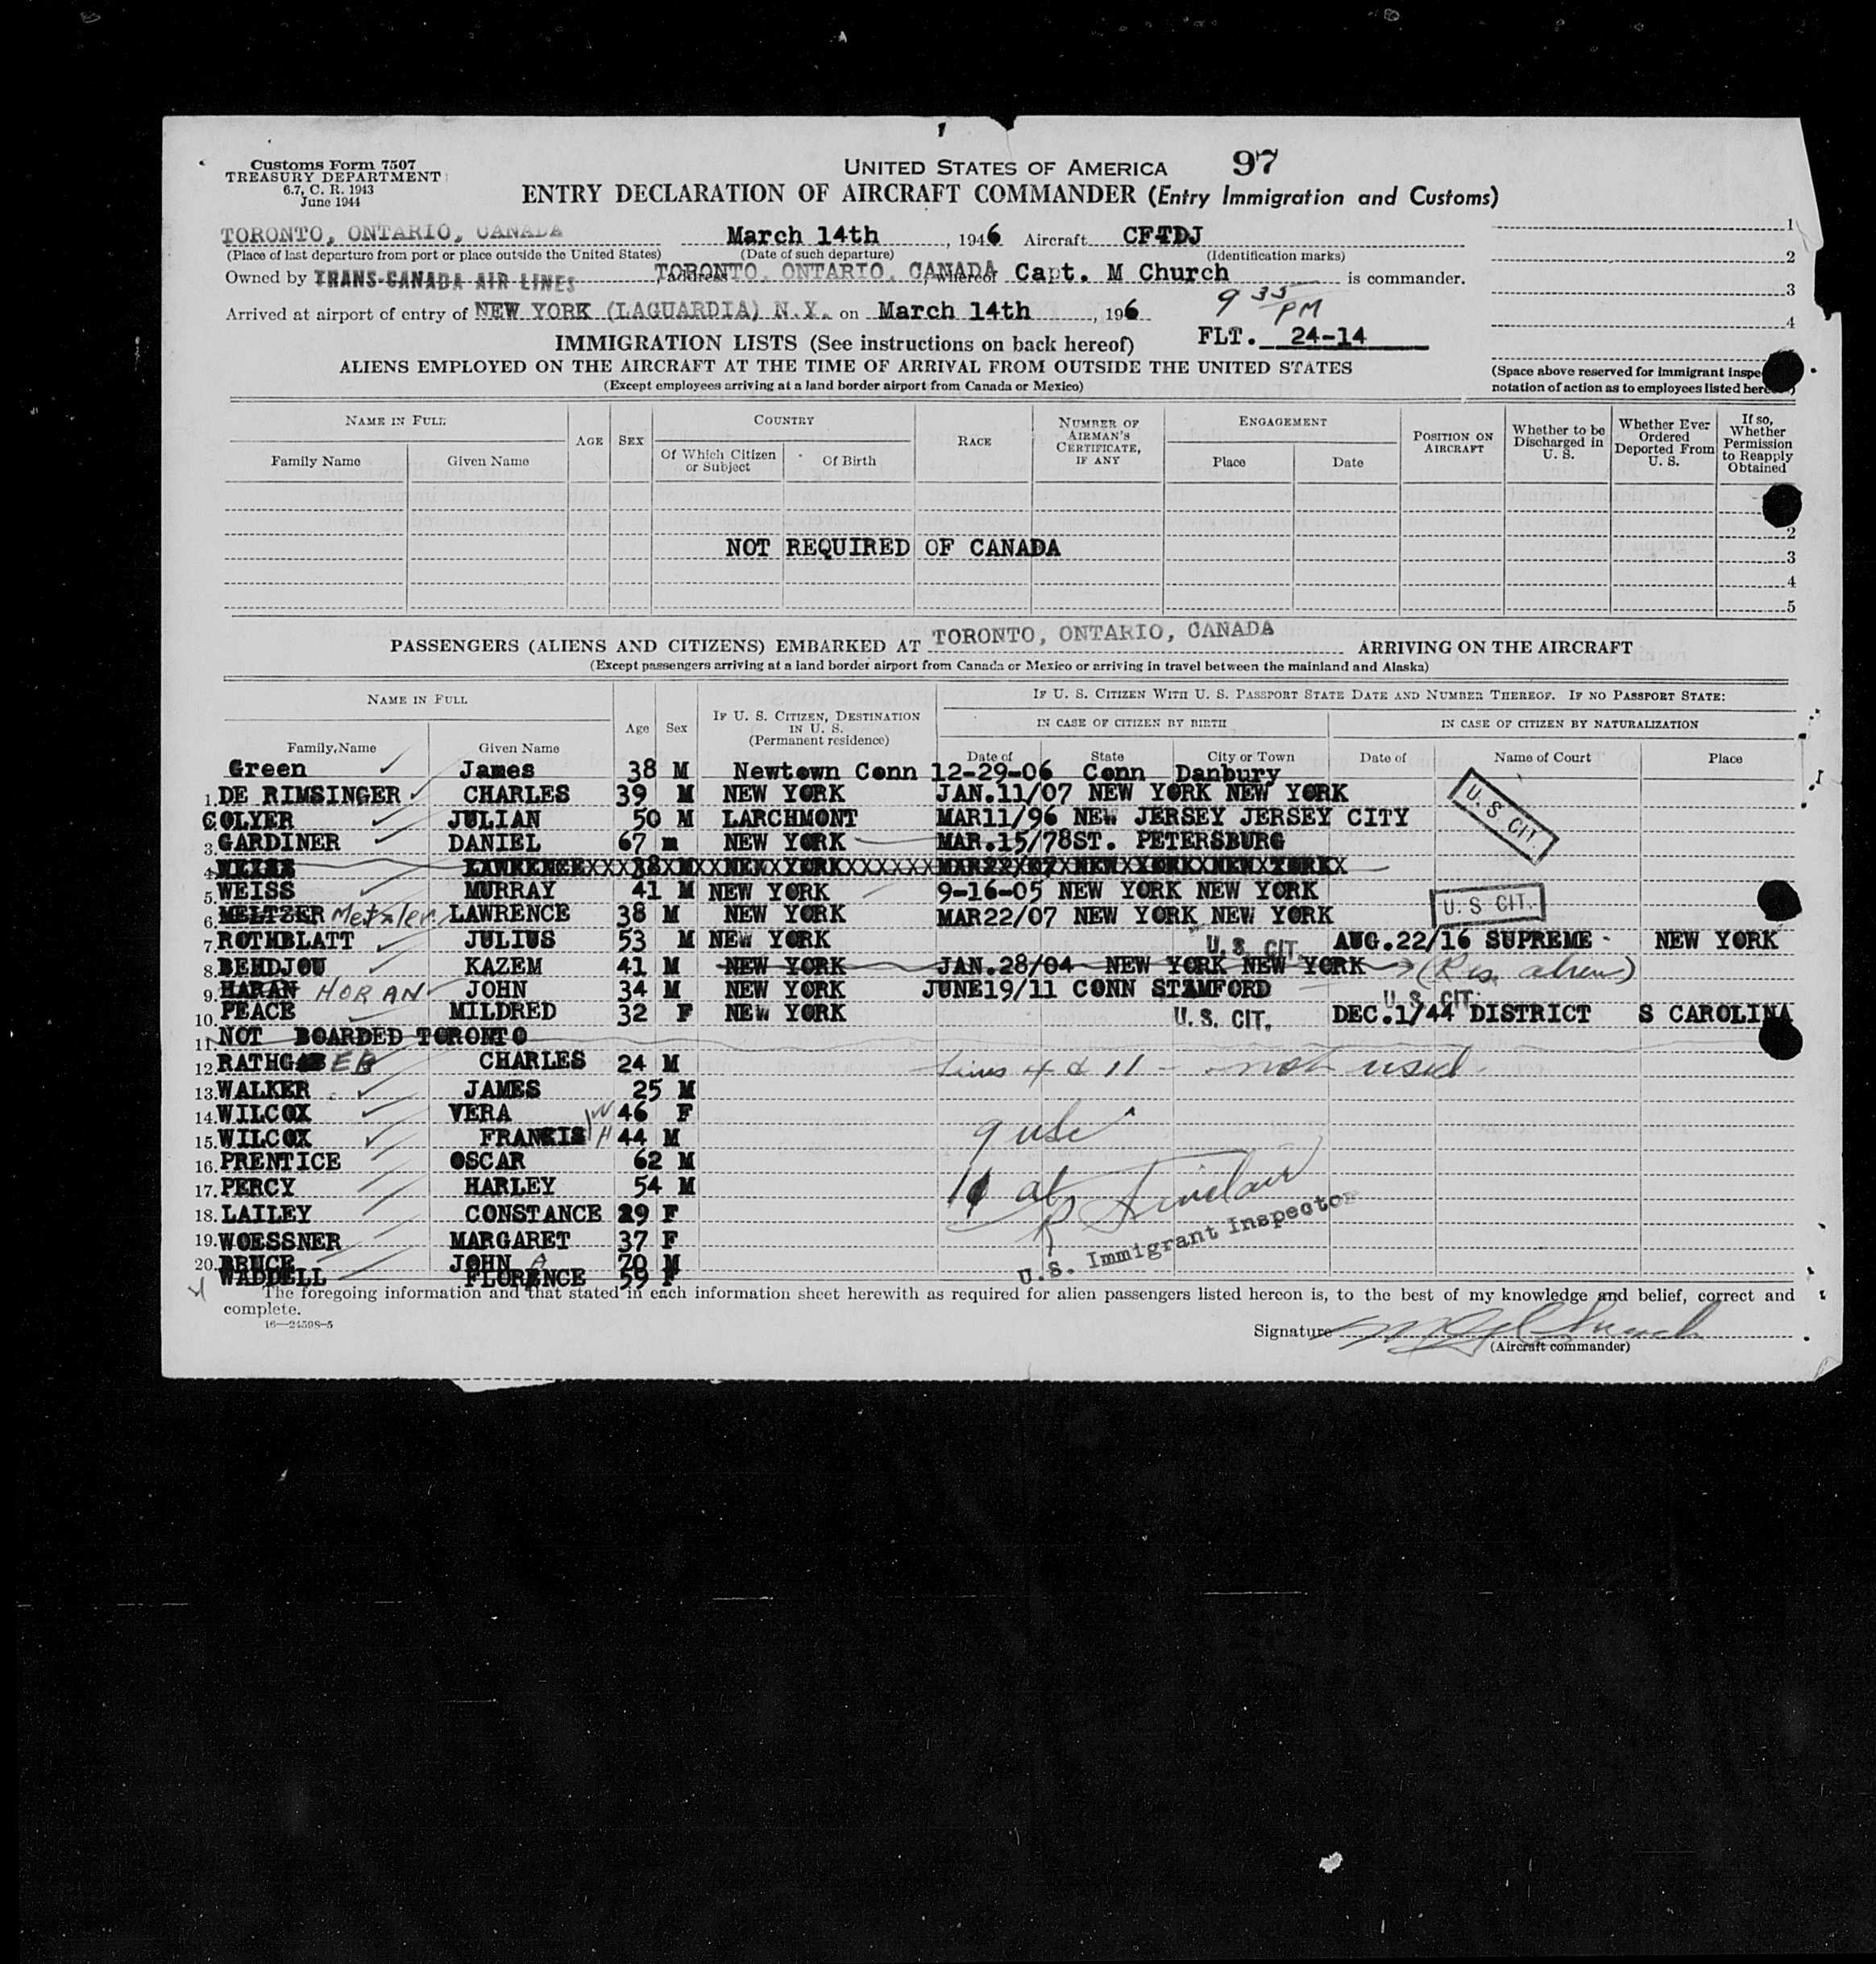 Customs Form 7507
TREASURY DEPARTMENT
6.7, C. R. 1943
June 1944
UNITED STATES OF AMERICA 97
ENTRY DECLARATION OF AIRCRAFT COMMANDER (Entry Immigration and Customs)
TORONTO, ONTARIO, CANADA March 14th, 1946 Aircraft CFTDJ
(Place of last departure from port or place outside the United States) (Date of such departure) (Identification marks)
Owned by TRANS-CANADA AIR LINES, address TORONTO, ONTARIO, CANADA, whereof Capt. M Church is commander.
9 35 PM
Arrived at airport of entry of NEW YORK (LAGUARDIA) N.Y. on March 14th, 196
FLT. 24-14
1
2
3
4
(Space above reserved for immigrant inspe
notation of action as to employees listed here
IMMIGRATION LISTS (See instructions on back hereof)
ALIENS EMPLOYED ON THE AIRCRAFT AT THE TIME OF ARRIVAL FROM OUTSIDE THE UNITED STATES
(Except employees arriving at a land border airport from Canada or Mexico)
NAME IN FULL
Family Name Given Name
AGE SEX
COUNTRY
Of Which Citizen or Subject Of Birth
RACE
NUMBER OF AIRMAN'S CERTIFICATE, IF ANY
ENGAGEMENT
Place Date
POSITION ON AIRCRAFT
Whether to be Discharged in U. S.
Whether Ever Ordered Deported From U. S.
If so, Whether Permission to Reapply Obtained
2
NOT REQUIRED OF CANADA
3
4
5
PASSENGERS (ALIENS AND CITIZENS) EMBARKED AT TORONTO, ONTARIO, CANADA ARRIVING ON THE AIRCRAFT
(Except passengers arriving at a land border airport from Canada or Mexico or arriving in travel between the mainland and Alaska)
NAME IN FULL
Family Name Given Name
Age Sex
IF U. S. CITIZEN, DESTINATION IN U. S. (Permanent residence)
IF U. S. CITIZEN WITH U. S. PASSPORT STATE DATE AND NUMBER THEREOF. IF NO PASSPORT STATE:
IN CASE OF CITIZEN BY BIRTH IN CASE OF CITIZEN BY NATURALIZATION
Date of State City or Town Date of Name of Court Place
Green James 38 M Newtown Conn 12-29-06 Conn Danbury
1. DE RIMSINGER CHARLES 39 M NEW YORK JAN.11/07 NEW YORK NEW YORK
U. S. CIT.
COLYER JULIAN 50 M LARCHMONT MAR11/96 NEW JERSEY JERSEY CITY
3. GARDINER DANIEL 67 m NEW YORK MAR.15/78 ST. PETERSBURG
4. LAWRENCE XXX 38 M XX NEW X YORK XXXXXX MAR22/07 X NEW X YORK X NEW X YORK X
5. WEISS MURRAY 41 M NEW YORK 9-16-05 NEW YORK NEW YORK
6. MELTZER Metzler LAWRENCE 38 M NEW YORK MAR22/07 NEW YORK NEW YORK U. S CIT.
7. ROTHBLATT JULIUS 53 M NEW YORK U. S. CIT. AUG.22/16 SUPREME - NEW YORK
8. BEHDJOU KAZEM 41 M NEW YORK JAN.28/04 NEW YORK NEW YORK (Res. alien)
9. HARAN HORAN JOHN 34 M NEW YORK JUNE19/11 CONN STAMFORD U. S. CIT.
10. PEACE MILDRED 32 F NEW YORK U. S. CIT. DEC.1/44 DISTRICT S CAROLINA
11. NOT BOARDED TORONTO
12. RATHGEB CHARLES 24 M Lines 4 & 11 - not used.
13. WALKER JAMES 25 M
14. WILCOX VERA W 46 F
15. WILCOX FRANCIS H 44 M 9 usc
16. PRENTICE OSCAR 62 M
17. PERCY HARLEY 54 M Sinclair
18. LAILEY CONSTANCE 29 F
19. WOESSNER MARGARET 37 F U.S. Immigrant Inspector
20. BRUCE JOHN A 70 M
WADDELL FLORENCE 59 F
The foregoing information and that stated in each information sheet herewith as required for alien passengers listed hereon is, to the best of my knowledge and belief, correct and
complete.
16—24598-5
Signature
(Aircraft commander)